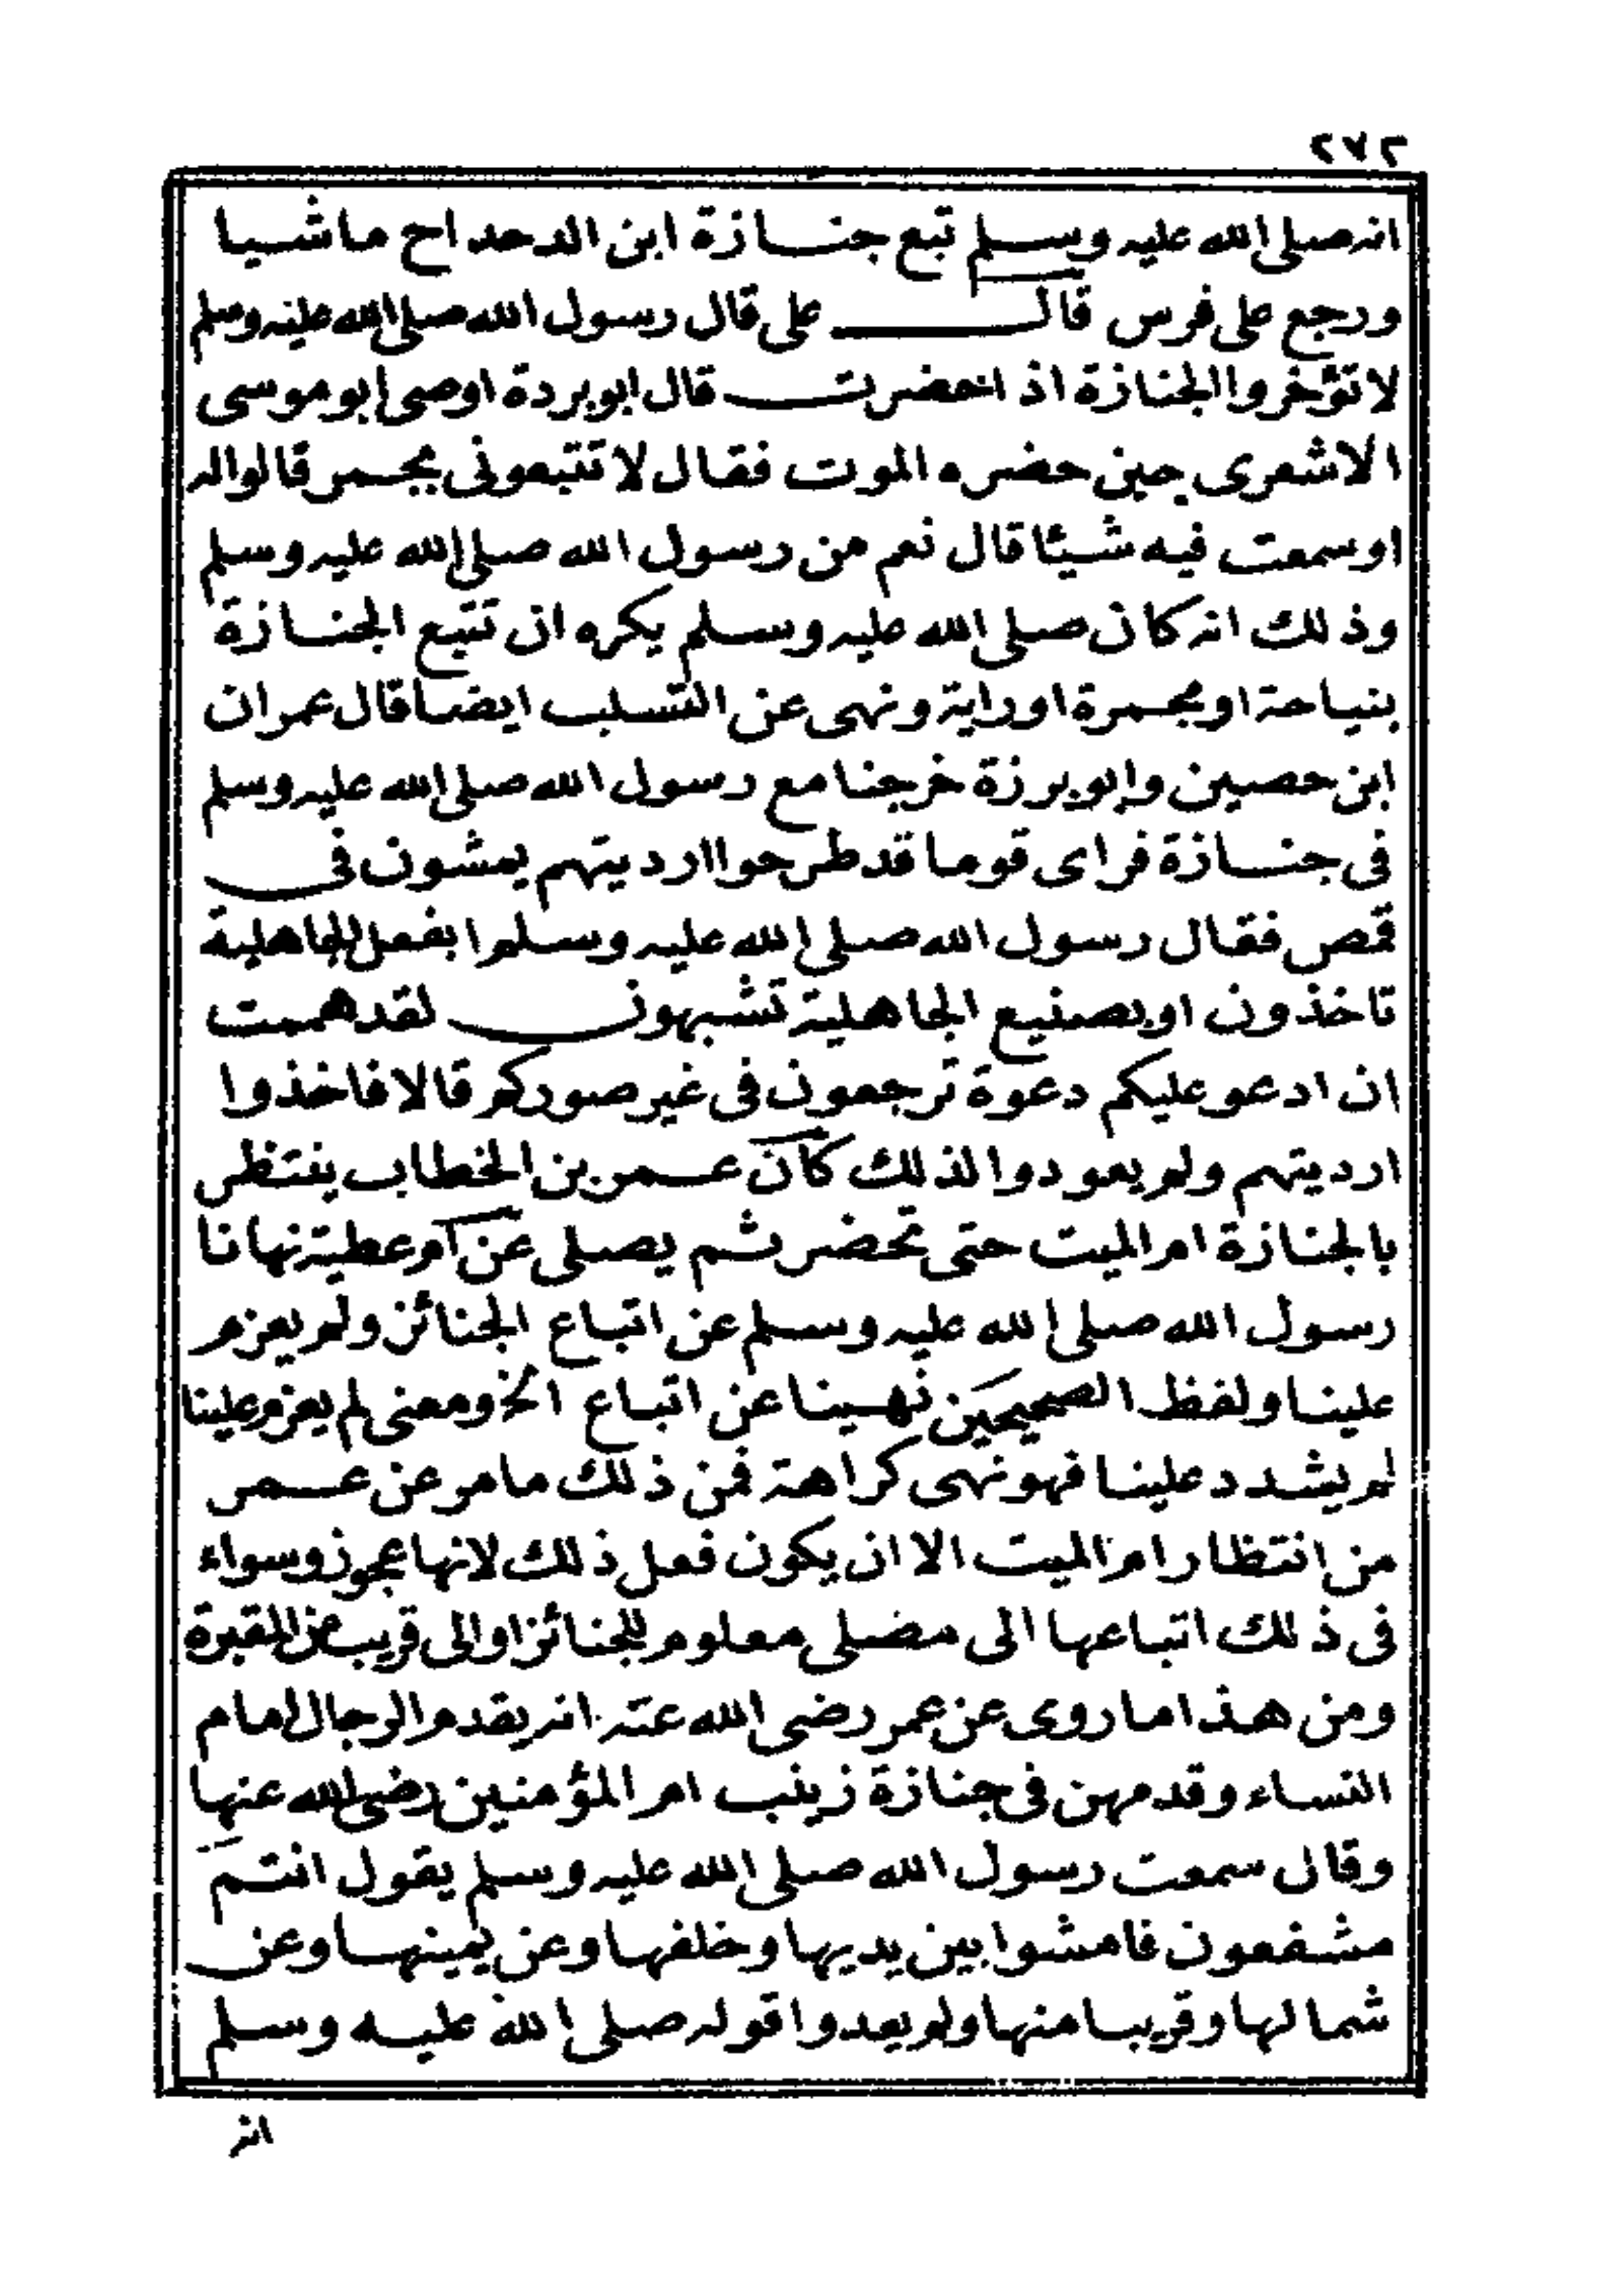 ٢٧٢
انه صلى الله عليه وسلم تبع جنازة ابن الدحداح ماشيا
ورجع على فرس قال على قال رسول الله صلى الله عليه وسلم
لا تؤخروا الجنازة اذا حضرت قال ابو بردة اوصى ابو موسى
الاشعرى حين حضره الموت فقال لا تتبعونى بمجمر قالوا له
او سمعت فيه شيئا قال نعم من رسول الله صلى الله عليه وسلم
وذلك انه كان صلى الله عليه وسلم يكره ان تتبع الجنازة
بنياحة او مجمرة او راية ونهى عن التسلب ايضا قال عمران
ابن حصين وابو برزة خرجنا مع رسول الله صلى الله عليه وسلم
فى جنازة فراى قوما قد طرحوا ارديتهم يمشون فى
قمص فقال رسول الله صلى الله عليه وسلم ابفعل الجاهلية
تاخذون او بصنيع الجاهلية تشبهون لقد هممت
ان ادعو عليكم دعوة ترجعون فى غير صوركم قالا فاخذوا
ارديتهم ولم يعودوا لذلك كان عمر بن الخطاب ينتظر
بالجنازة ام الميت حتى تحضر ثم يصلى عن ام عطية نهانا
رسول الله صلى الله عليه وسلم عن اتباع الجنائز ولم يعزم
علينا ولفظ الصحيحين نهينا عن اتباع الخ ومعنى لم يعزم علينا
لم يشدد علينا فهو نهى كراهة فمن ذلك ما مر عن عمر
من انتظار ام الميت الا ان يكون فعل ذلك لانها عجوز وسواء
فى ذلك اتباعها الى مضلى معلوم للجنائز او الى قريب من المقبرة
ومن هذا ما روى عن عمر رضى الله عنه انه يقدم الرجال امام
النساء وقدمهن فى جنازة زينب ام المؤمنين رضى الله عنها
وقال سمعت رسول الله صلى الله عليه وسلم يقول انتم
مشفعون فامشوا بين يديها وخلفها وعن يمينها وعن
شمالها وقريبا منها ولم يعدوا قوله صلى الله عليه وسلم
انه